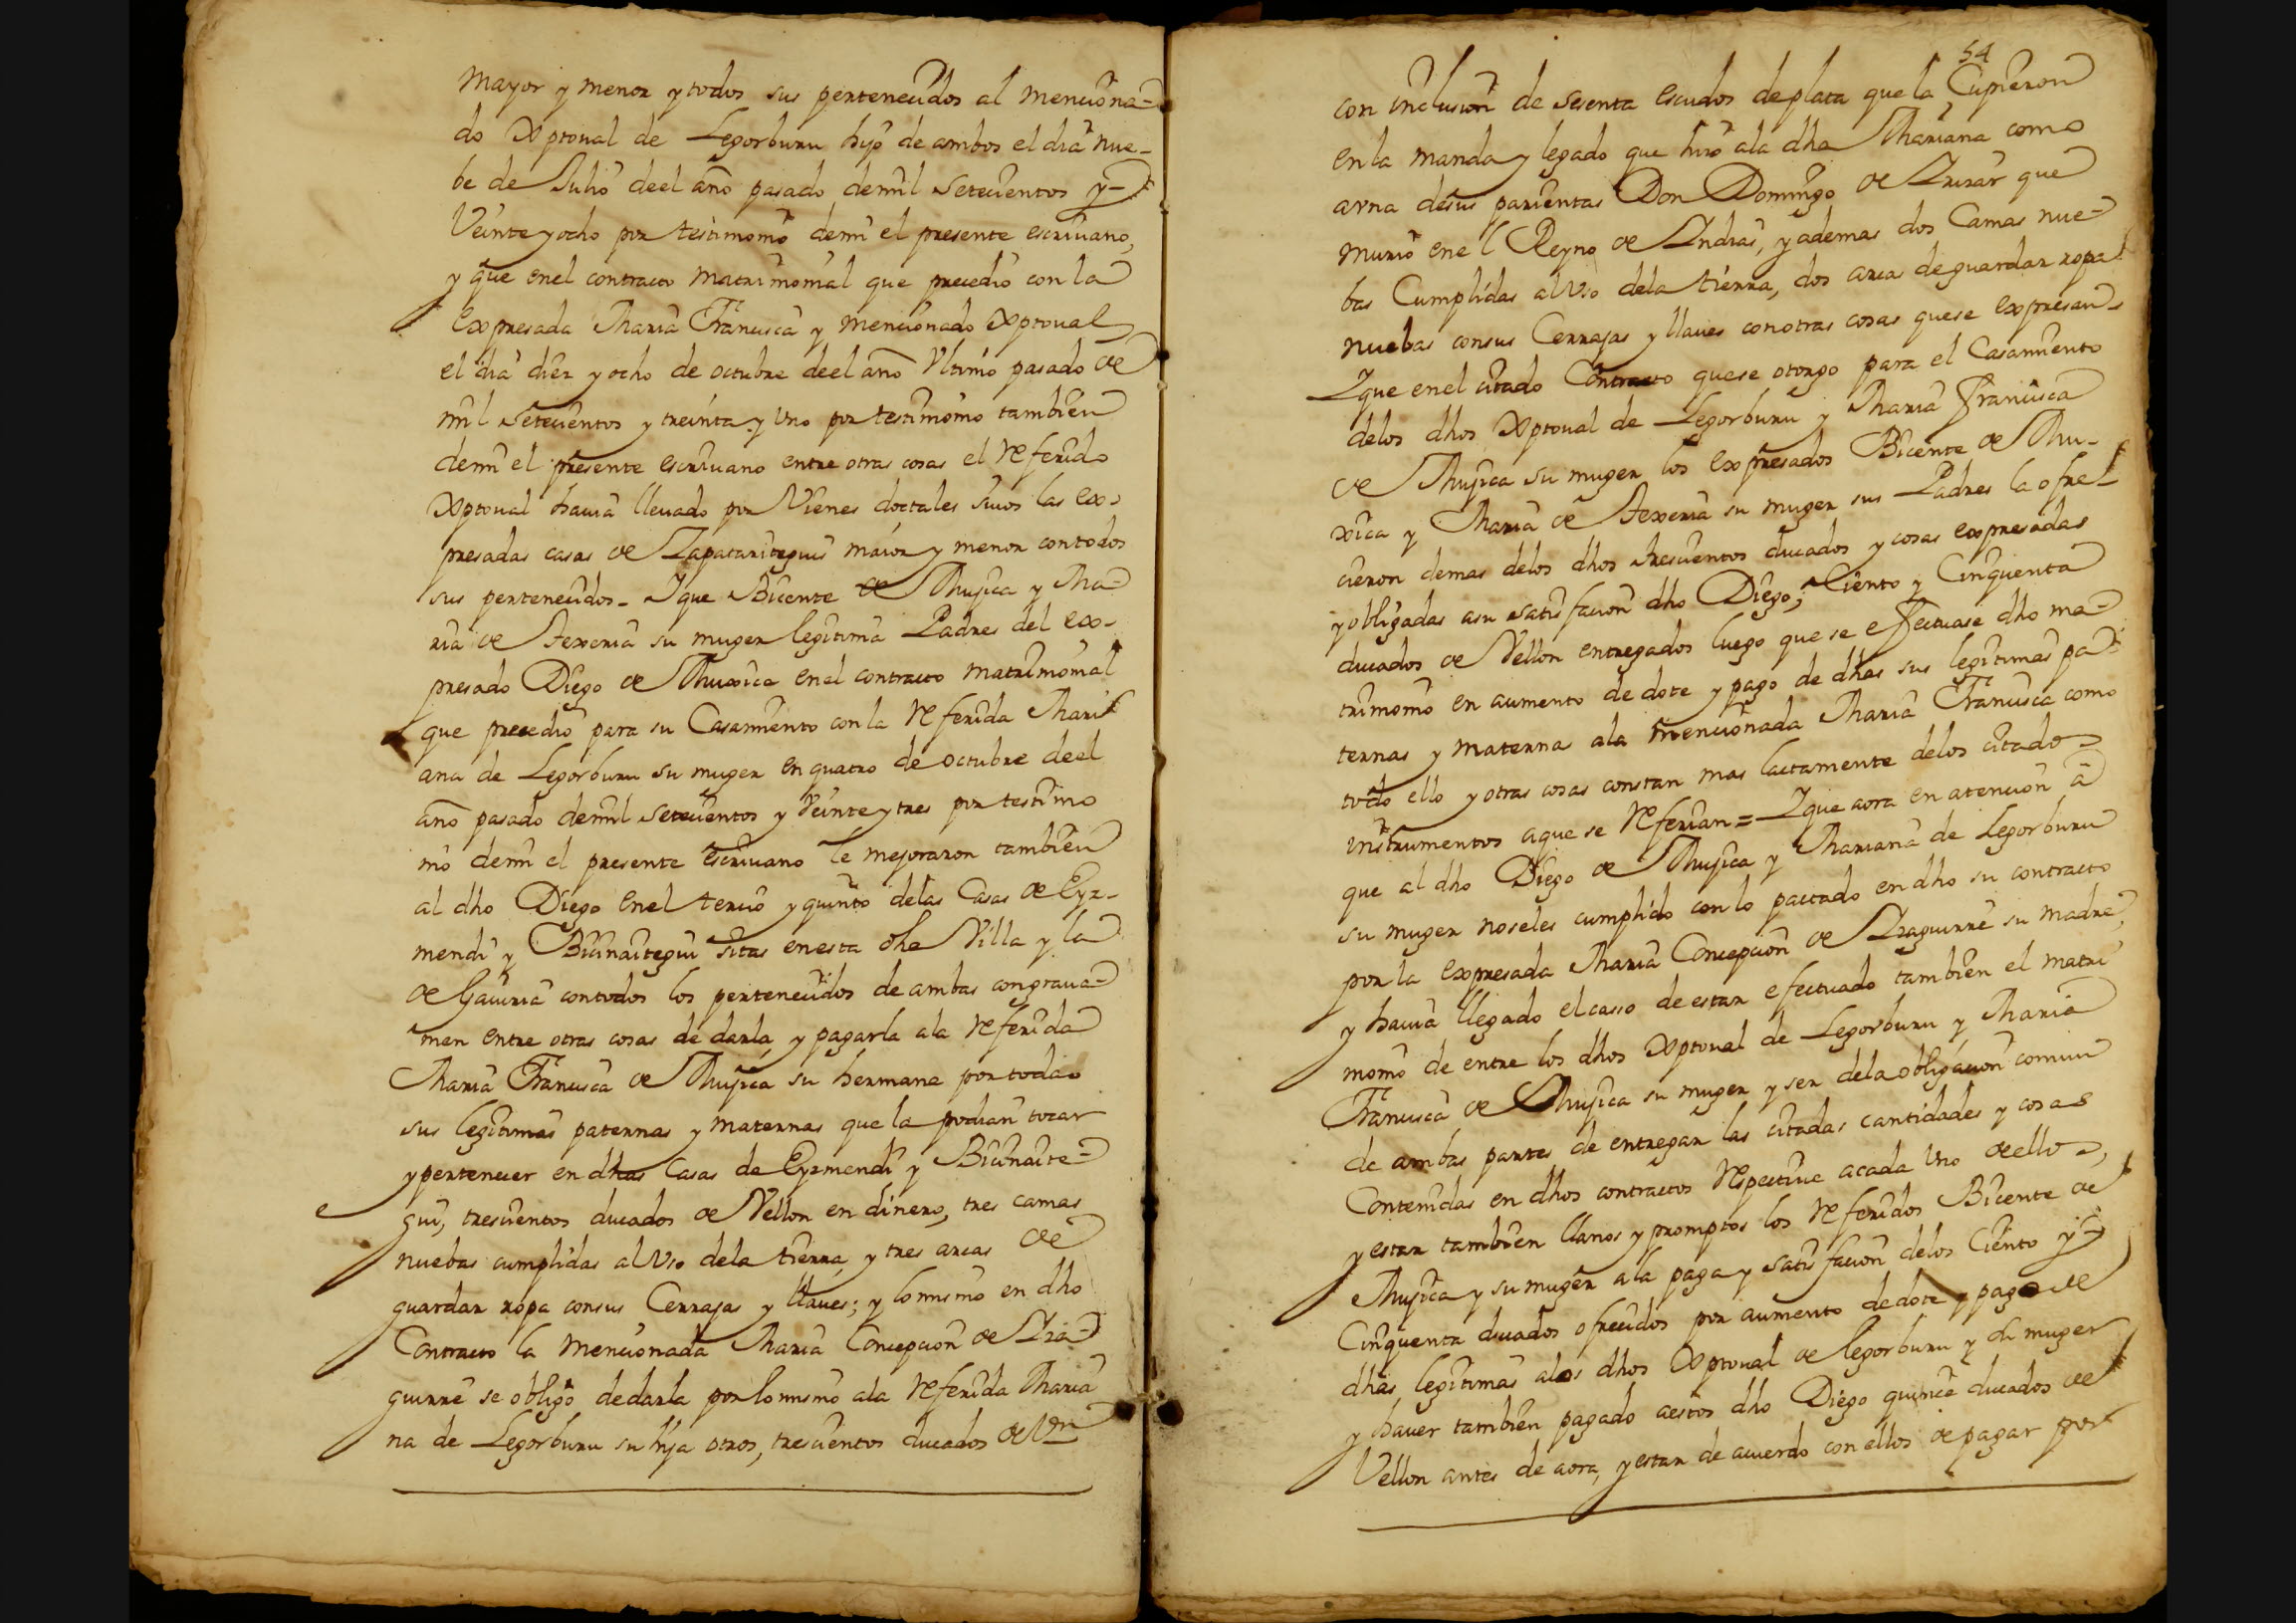 mayor y menor y todos sus pertenecidos al menciona-
do Xptoual de Legorburu hijo de ambos el dia nue-
be de Julio deel año pasado demil setecientos y
Veinte y ocho por testimonio demi el presente escriuano,
y que enel contracto matrimonial que precedio con la
expresada Maria Francisca y mencionado Xptoual
el dia diez y ocho de octubre deel año Vltimo pasado de
mil setecientos y treinta y Vno por testimonio tambien
demi el presente escriuano entre otras cosas el referido
Xptoual hauia lleuado por Vienes doctales suios las ex-
presadas casas de Zapataritegui maior y menor contodos
sus pertenecidos - Ique Bicente de Mujica y Ma-
ria de Texeria su muger legitima Padres del ex-
presado Diego de Muxica enel contracto matrimonial
que precedio para su Casamiento con la referida Mari
ana de Legorburu su muger en quatro de octubre deel
año pasado demil setecientos y Veinte y tres por testimo
nio demi el presente escriuano le mejoraron tambien
al dho Diego enel tercio y quinto delas Casas de Eyz-
mendi y Bicinaitegui sitas enesta dha Villa y la
de Gauiria contodos los pertenecidos de ambas congraua-
men entre otras cosas de darla y pagarla ala referida
Maria Francisca de Mujica su hermana por todas
sus legitimas paternas y maternas que la podian tocar
y pertenecer en dhas Casas de Eyzmendi y Bicinaite-
gui, trescientos ducados de Vellon en dinero, tres camas
nuebas cumplidas al Vso dela tierra, y tres arcas de
guardar ropa consus Cerrajas y llaues; y lo mismo en dho
Contracto la mencionada Maria Concepcion de Iza-
guirre se obligo dedarla por lo mismo ala referida Maria
na de Legorburu su hija otros, trescientos ducados de Vn
54
con inclusion de sesenta escudos deplata que la Cupieron
en la manda y legado que hizo ala dha Mariana como
avna desus parientas Don Domingo de Irizar que
murio enel Reyno de Indias, y ademas dos Camas nue-
bas Cumplidas al Vso dela tierra, dos arcas deguardar ropa
nuebas consus Cerrajas y llaues conotras cosas quese expresan
Ique enel citado Contracto quese otorgo para el Casamiento
delos dhos Xptoual de Legorburu y Maria Francisca
de Mujica su muger los expresados Bicente de Mu-
xica y Maria de Texeria su muger sus Padres la ofre-
cieron demas delos dhos trescientos ducados y cosas expresadas
y obligadas asu satisfacion dho Diego; Ciento y Cinquenta
ducados de Vellon entregados luego que se efectuase dho ma-
trimonio en aumento de dote y pago de dhas sus legitimas pa-
ternas y materna ala mencionada Maria Francisca como
todo ello y otras cosas constan mas lactamente delos citados
instrumentos aque se referian = Ique aora en atencion â
que al dho Diego de Mujica y Mariana de Legorburu
su muger noseles cumplido con lo pactado en dho su contracto
por la expresada Maria Concepcion de Izaguirre su madre,
y hauia llegado el caso de estar efectuado tambien el matri
monio de entre los dhos Xptoual de Legorburu y Maria
Francisca de Mujica su muger y ser dela obligacion comun
de ambas partes de entregar las citadas cantidades y cosas
Contenidas en dhos contractos respectiue acada Vno dellos,
y estar tambien llanos y promptos los referidos Bicente de
Mujica y su muger ala paga y satisfacion delos Ciento y
Cinquenta ducados ofrecidos por aumento dedote y pago de
dhas legitimas alos dhos Xptoual de legorburu y su muger
y hauer tambien pagado aestos dho Diego quince ducados de
Vellon antes de aora, y estar de acuerdo con ellos de pagar por